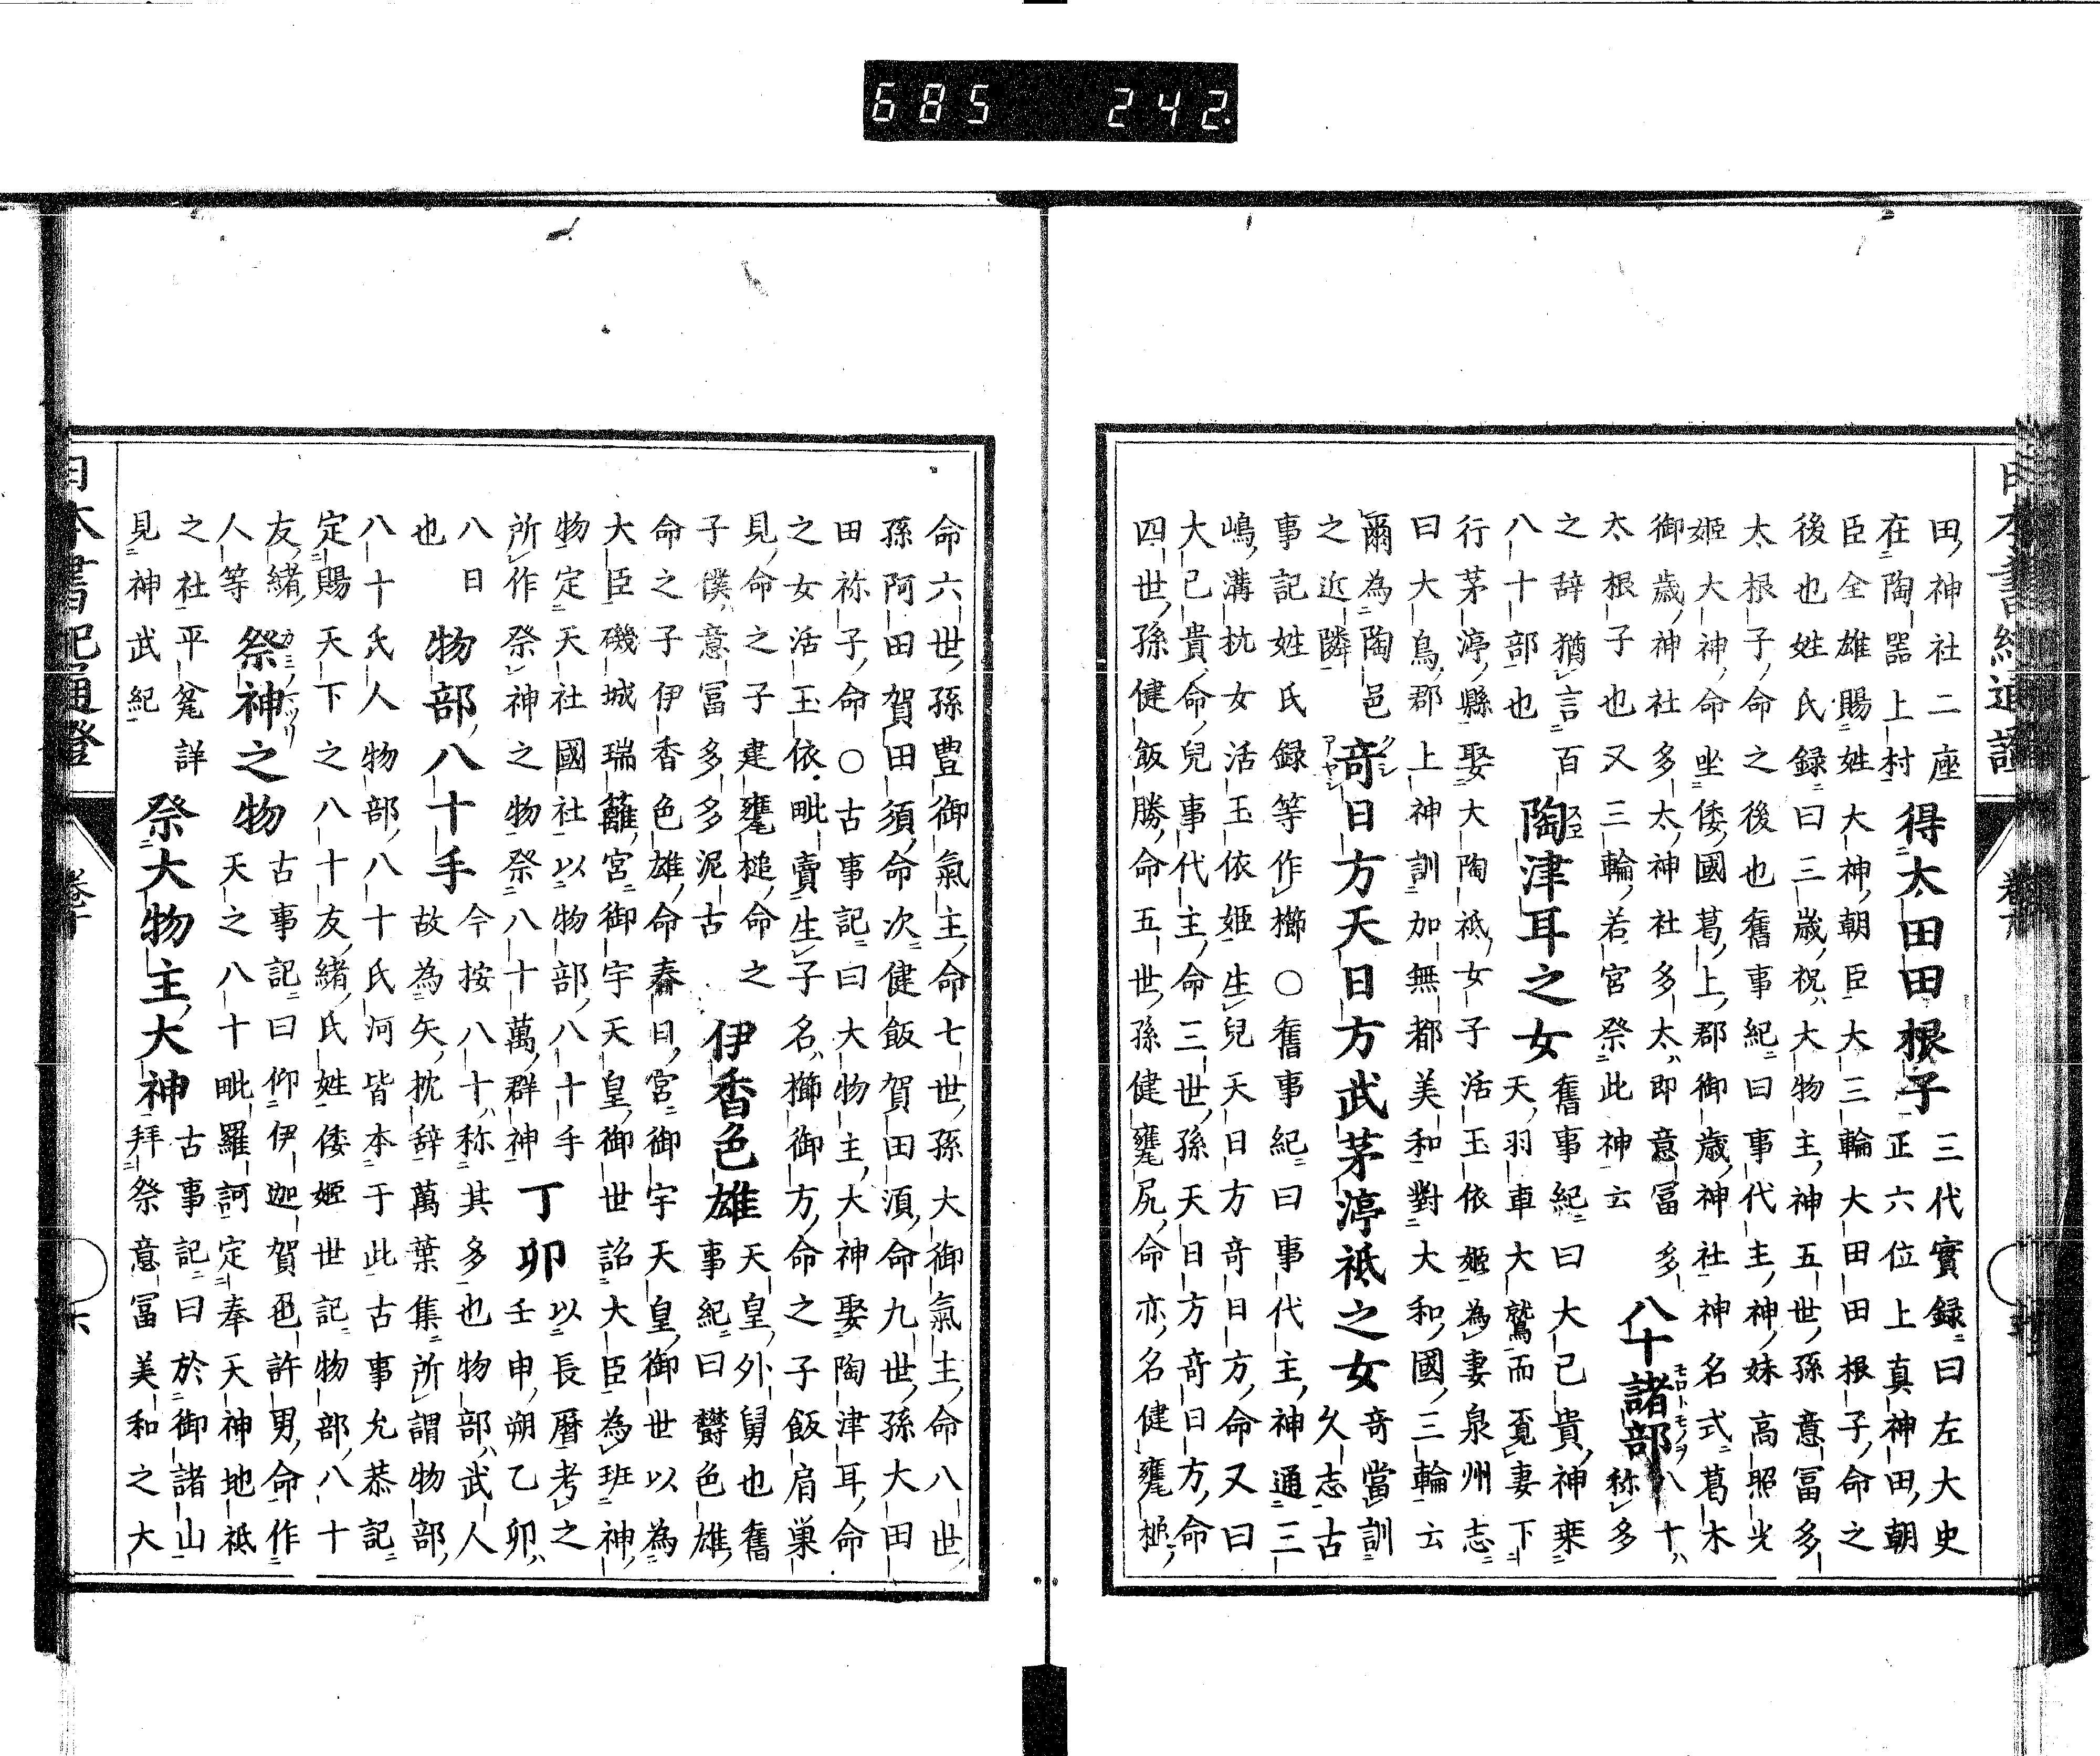 685 242.
田神社二座 三代實録曰左大史
在陶器上村 得太田田根子 正六位上真神田朝
臣全雄賜姓大神朝臣大三輪大田田根子命之
後也姓氏録曰三歳祝大物主神五世孫意冨多
太根子命之後也舊事紀曰事代主神妹高照光
姬大神命坐倭國葛上郡御歳神社神名式葛木
御歳神社多太神社多太即意冨多
太根子也又三輪若宮祭此神云 八十諸部 八十称多
モロトモノヲ
之辞猶言百
八十部也 陶津耳之女 舊事紀曰大已貴神乗
天羽車大鷲而覓妻下
行茅渟縣娶大陶祇女子活玉依姬為妻泉州志
曰大鳥郡上神訓加無都美和對大和國三輪云
爾為陶邑
之近隣 奇日方天日方武茅渟祇之女 奇當訓
久志古
クシ
アヤシ
事記姓氏録等作櫛○舊事紀曰事代主神通三
嶋溝抗女活玉依姬生兒天日方奇日方命又曰
大已貴命兒事代主命三世孫天日方奇日方命
四世孫健飯勝命五世孫健甕尻命亦名健甕槌
命六世孫豊御氣主命七世孫大御氣主命八世
孫阿田賀田須命次健飯賀田湏命九世孫大田
田祢子命○古事記曰大物主大神娶陶津耳命
之女活玉依毗賣生子名櫛御方命之子飯肩巢
見命之子建甕槌命之
子僕意冨多多泥古 伊香色雄 天皇外舅也舊
事紀曰欝色雄
命之子伊香色雄命春日宮御宇天皇御世以為
大臣磯城瑞籬宮御宇天皇御世詔大臣為班神
物定天社國社以物部八十手
所作祭神之物祭八十萬群神 丁卯 以長曆考之
壬申朔乙卯
八日
也 物部八十手 今按八十称其多也物部武人
故為矢枕辞萬葉集所謂物部
八十氏人物部八十氏河皆本于此古事允恭記
定賜天下之八十友緒氏姓倭姬世記物部八十
友緒
人等 祭神之物 古事記曰仰伊迦賀色許男命作
天之八十毗羅訶定奉天神地祇
之社平瓮詳
見神武紀 祭大物主大神 古事記曰於御諸山
拜祭意冨美和之大
日本書紀通證